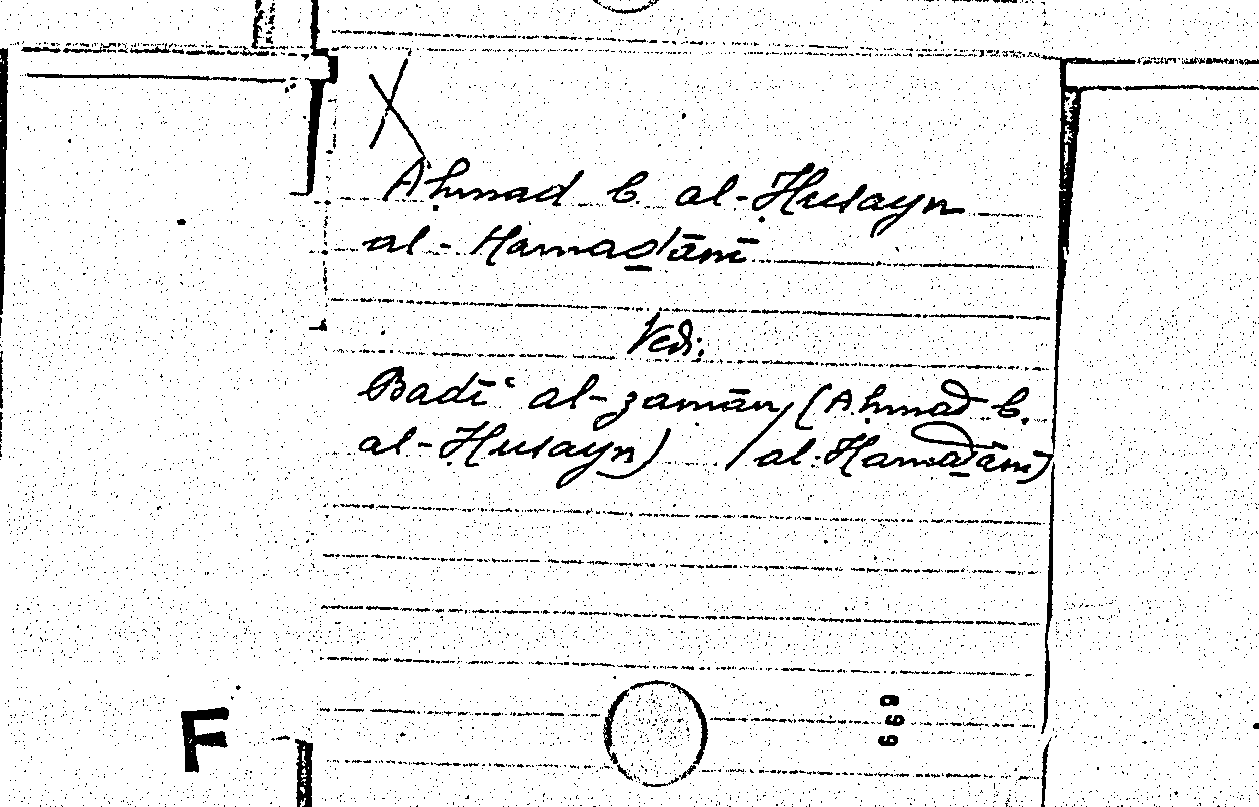 X
Aḥmad b. al-Ḥusayn
al-Hamaḏānī
Vedi:
Badīʿ al-zamān (Aḥmad b.
al-Ḥusayn) / al-Hamaḏānī
F
699